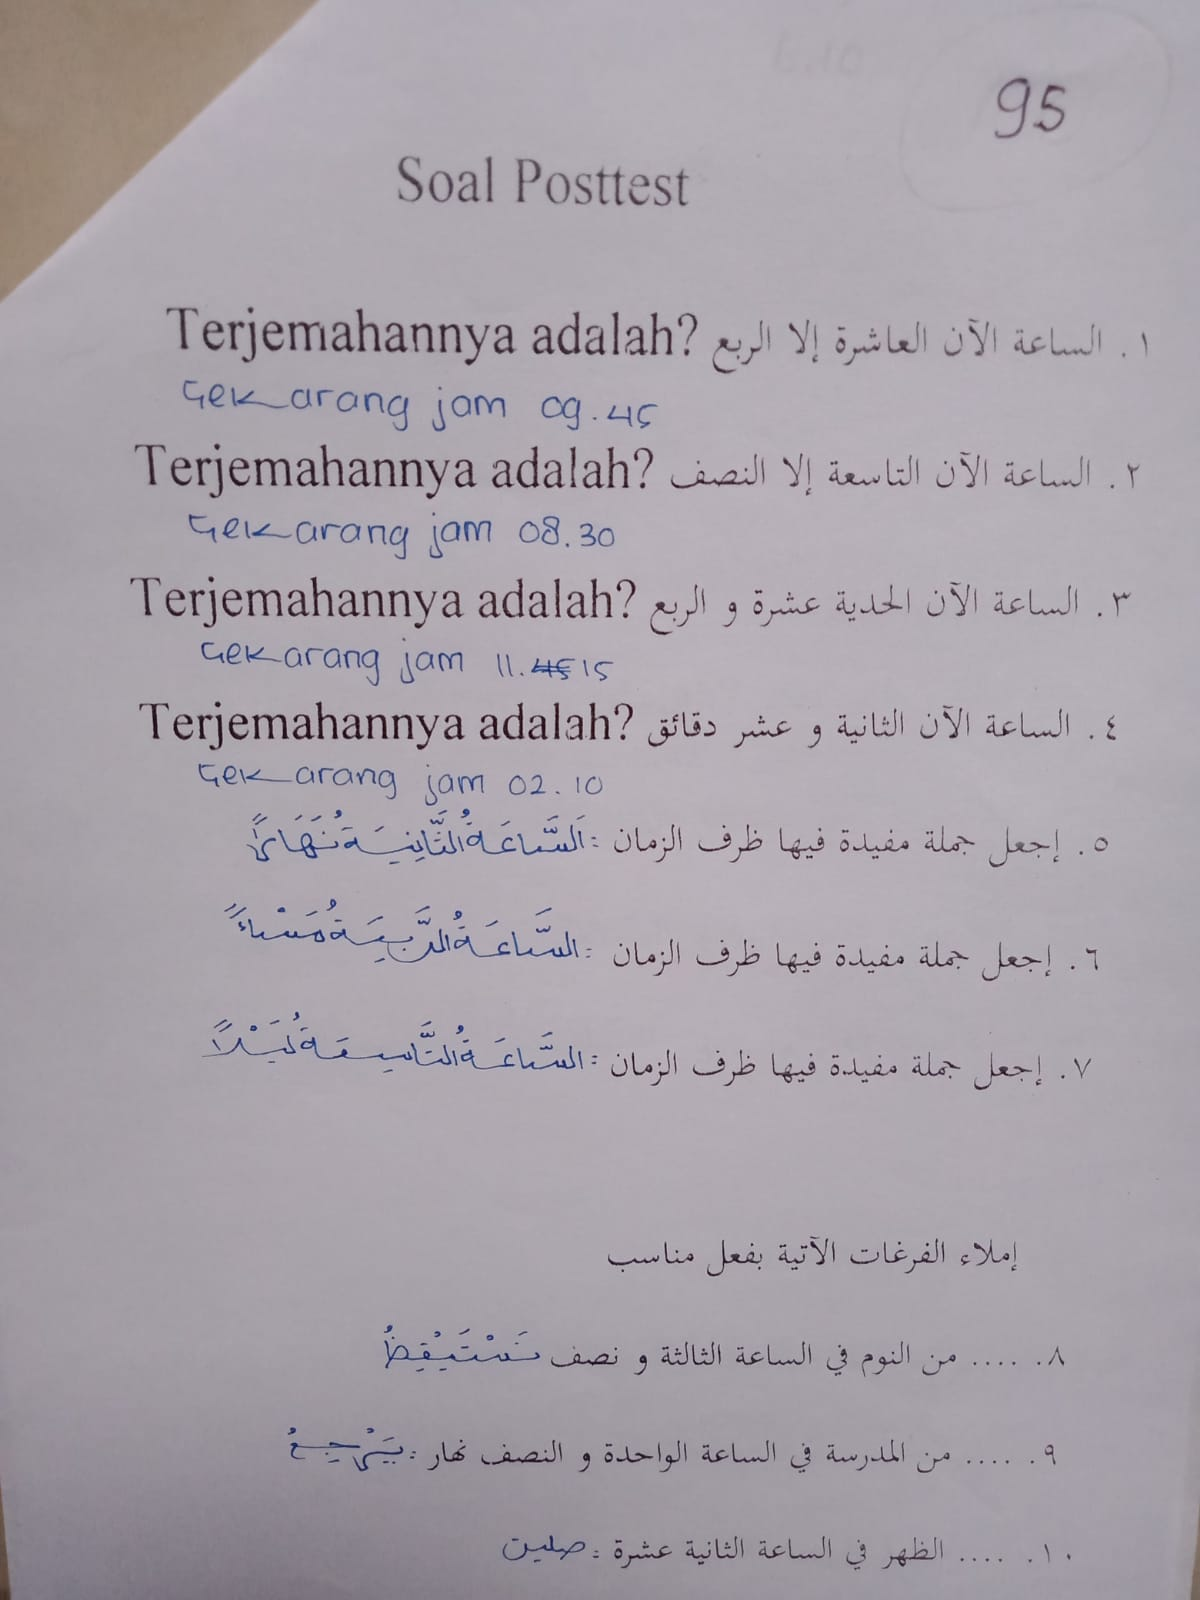 95
Soal Posttest
١. الساعة الآن العاشرة إلا الربع Terjemahannya adalah?
Sekarang jam 09.45
٢. الساعة الآن التاسعة إلا النصف Terjemahannya adalah?
Sekarang jam 08.30
٣. الساعة الآن الحدية عشرة و الربع Terjemahannya adalah?
Sekarang jam 11.45 15
٤. الساعة الآن الثانية و عشر دقائق Terjemahannya adalah?
Sekarang jam 02.10
٥. إجعل جملة مفيدة فيها ظرف الزمان : اَلسَّاعَةُ الثَّانِيَةُ نَهَارًا
٦. إجعل جملة مفيدة فيها ظرف الزمان : السَّاعَةُ مَسْاءً
٧. إجعل جملة مفيدة فيها ظرف الزمان : السَّاعَةُ التَّاسِعَةُ لَيْلًا
إملاء الفرغات الآتية بفعل مناسب
٨. .... من النوم في الساعة الثالثة و نصف نَسْتَيْقِظُ
٩. .... من المدرسة في الساعة الواحدة و النصف نهار : يَرْجِعُ
١٠. .... الظهر في الساعة الثانية عشرة : صليت